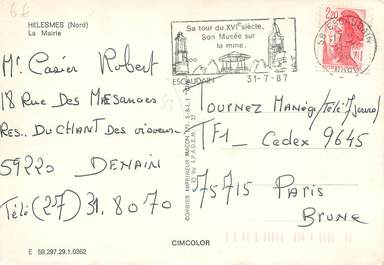 HELESMES (Nord)
La Mairie
Sa tour du XVIe siècle.
Son Musée sur
la mine.
ESCAUDAIN 31-7-87
2,20
Mr. Casier Robert
18 Rue Des Mesanges
Res. Du CHANT Des oiseaux
59220 DENAIN
Télé (27) 31.80 70
TOURNEZ Manège (Télé-7 jours)
TF1_ Cedex 9645
75715 PARIS
Brune
COMBIER IMPRIMEUR MACON
CIMCOLOR
E 59.297.29.1.0362